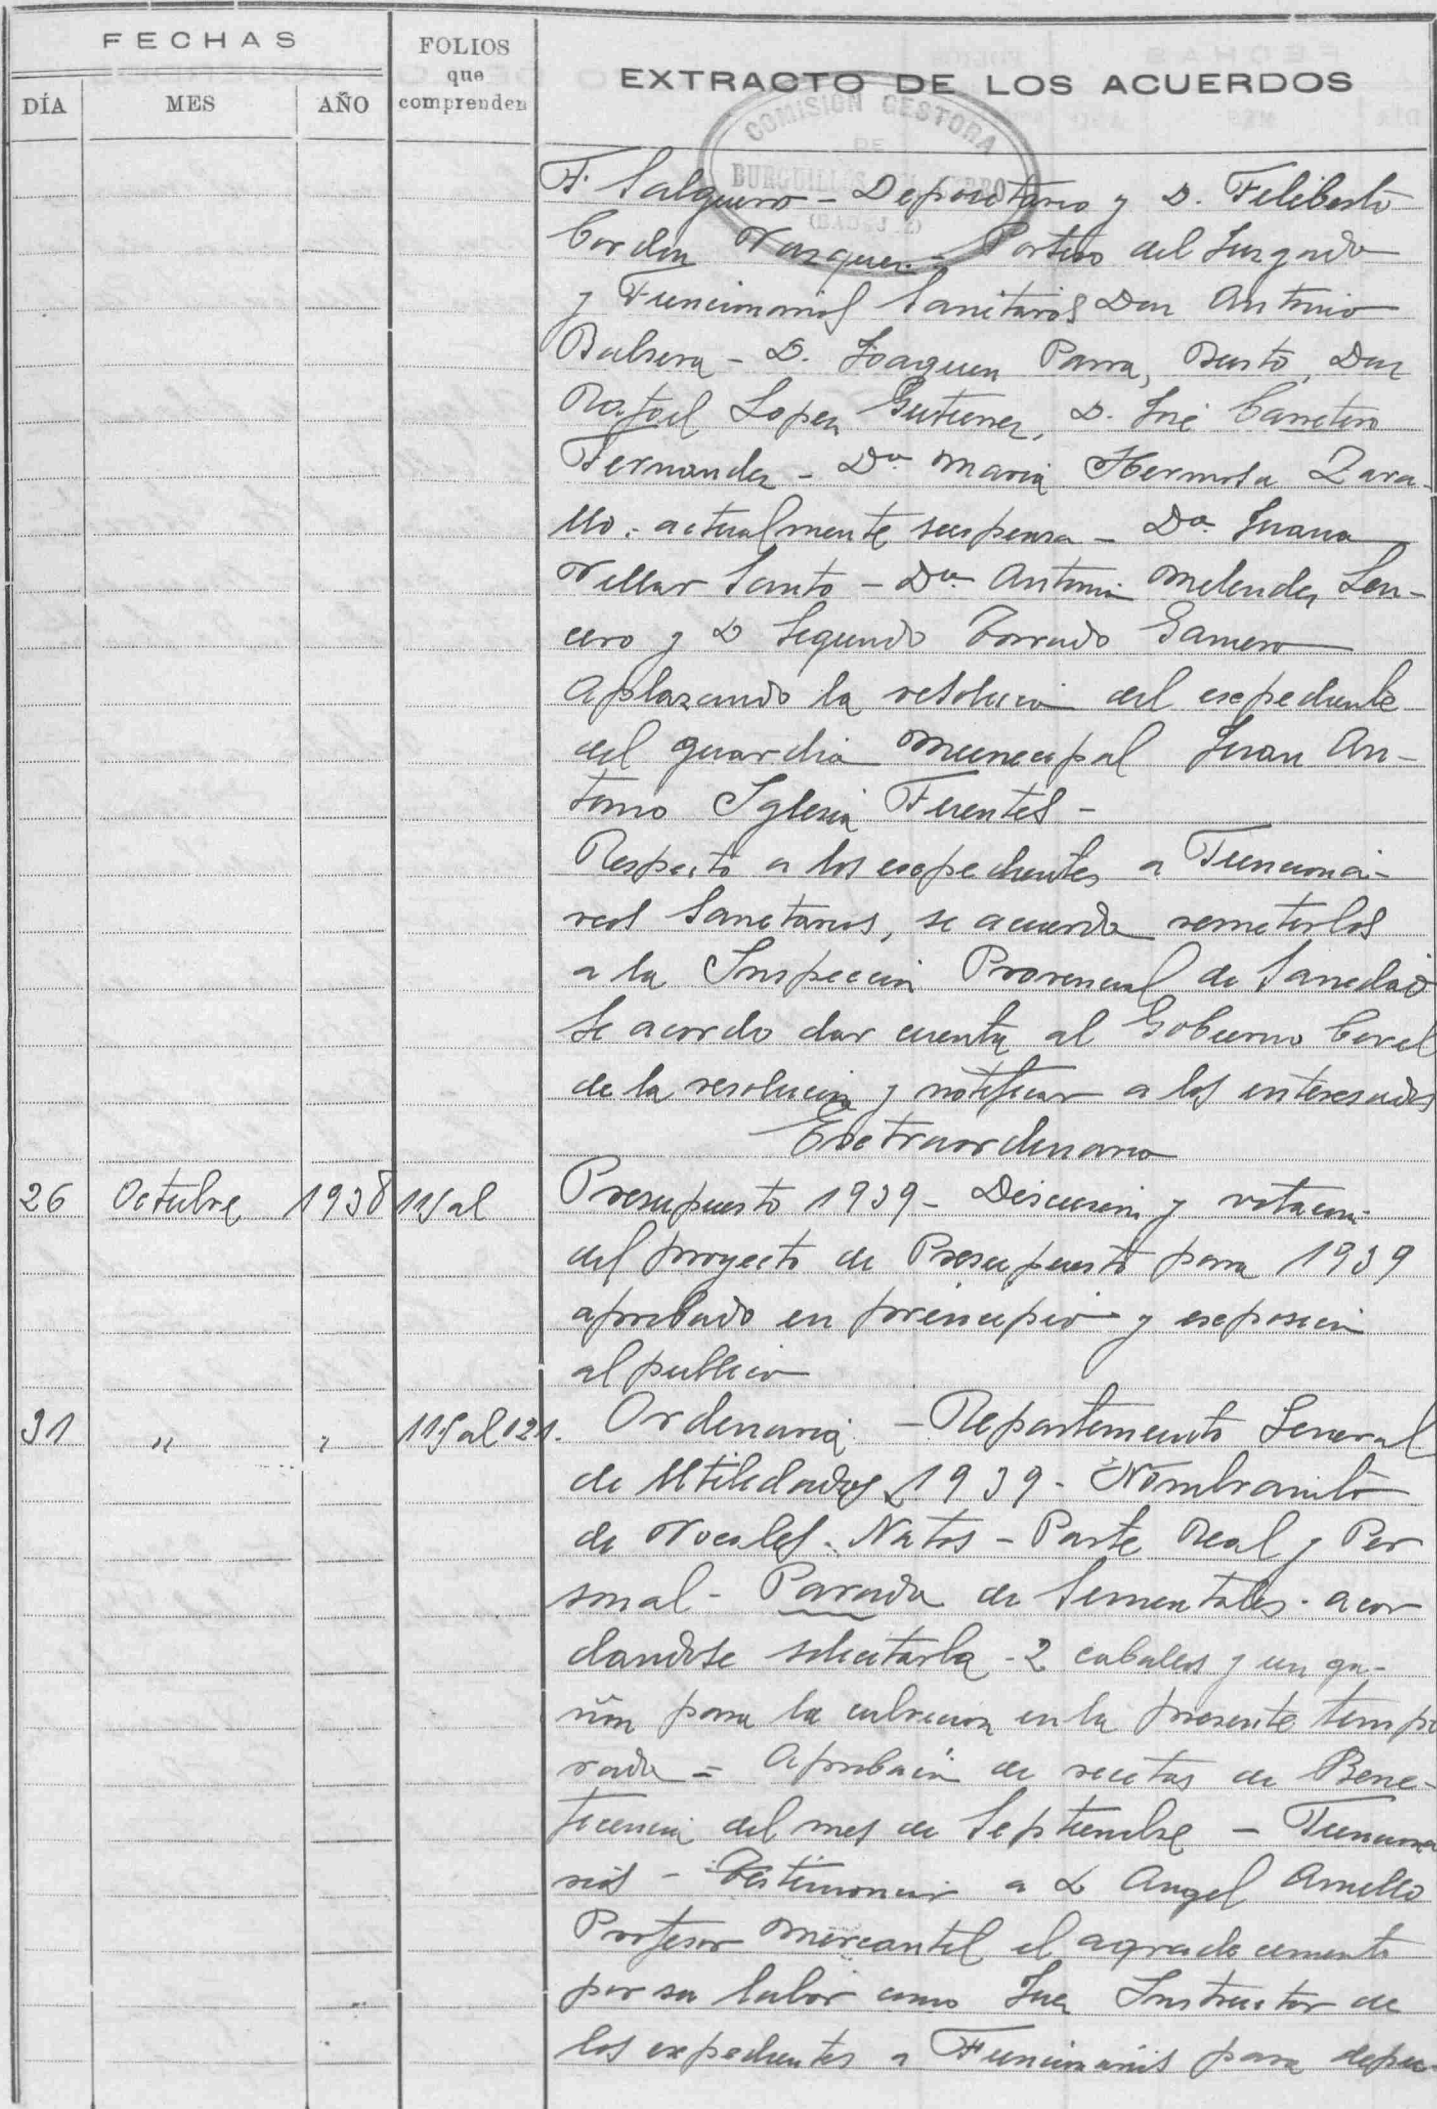 FECHAS
FOLIOS
que
comprenden
EXTRACTO DE LOS ACUERDOS
DÍA MES AÑO
COMISION GESTORA
DE
BURGUILLOS DEL CERRO
(BADAJOZ)
F. Salguero - Depositario y D. Feliberto
Cordon Vazquez - Portero del Juzgado
y Funcionarios Sanitarios Don Antonio
Balsera - D. Joaquin Parra, Busto, Don
Rafael Lopez Gutierrez, D. José Carretero
Fernandez - Dª Maria Hermosa Zara-
llo: actualmente suspensa - Dª Juana
Villar Santo - Dª Antonia Melendez Len-
cero y D Segundo Torrado Gamero
Aplazando la resolucion del expediente
del guardia municipal Juan An-
tonio Iglesia Fuentes -
Respecto a los expedientes a Funciona-
rios Sanitarios, se acuerda remitirlos
a la Inspeccion Provincial de Sanidad
Se acordo dar cuenta al Gobierno Civil
de la resolucion y notificar a los interesados
Extraordinaria
26 Octubre 1938 115 al Presupuesto 1939 - Discusion y votacion
del proyecto de Presupuesto para 1939
aprobado en principio y exposicion
al publico
31 " " 115 al 121. Ordinaria - Repartimiento General
de Utilidades 1939 - Nombramito
de Vocales Natos - Parte Real y Per
sonal - Parada de Sementales - acor
dandose solicitarla - 2 caballos y un ga-
ñon para la cubricion en la presente tempo
rada = Aprobacion de recetas de Bene-
ficencia del mes de Septiembre - Funciona
rios - Testimoniar a D Angel Arnello
Profesor Mercantil el agradecimiento
por su labor como Juez Instructor de
los expedientes a Funcionarios para depu-